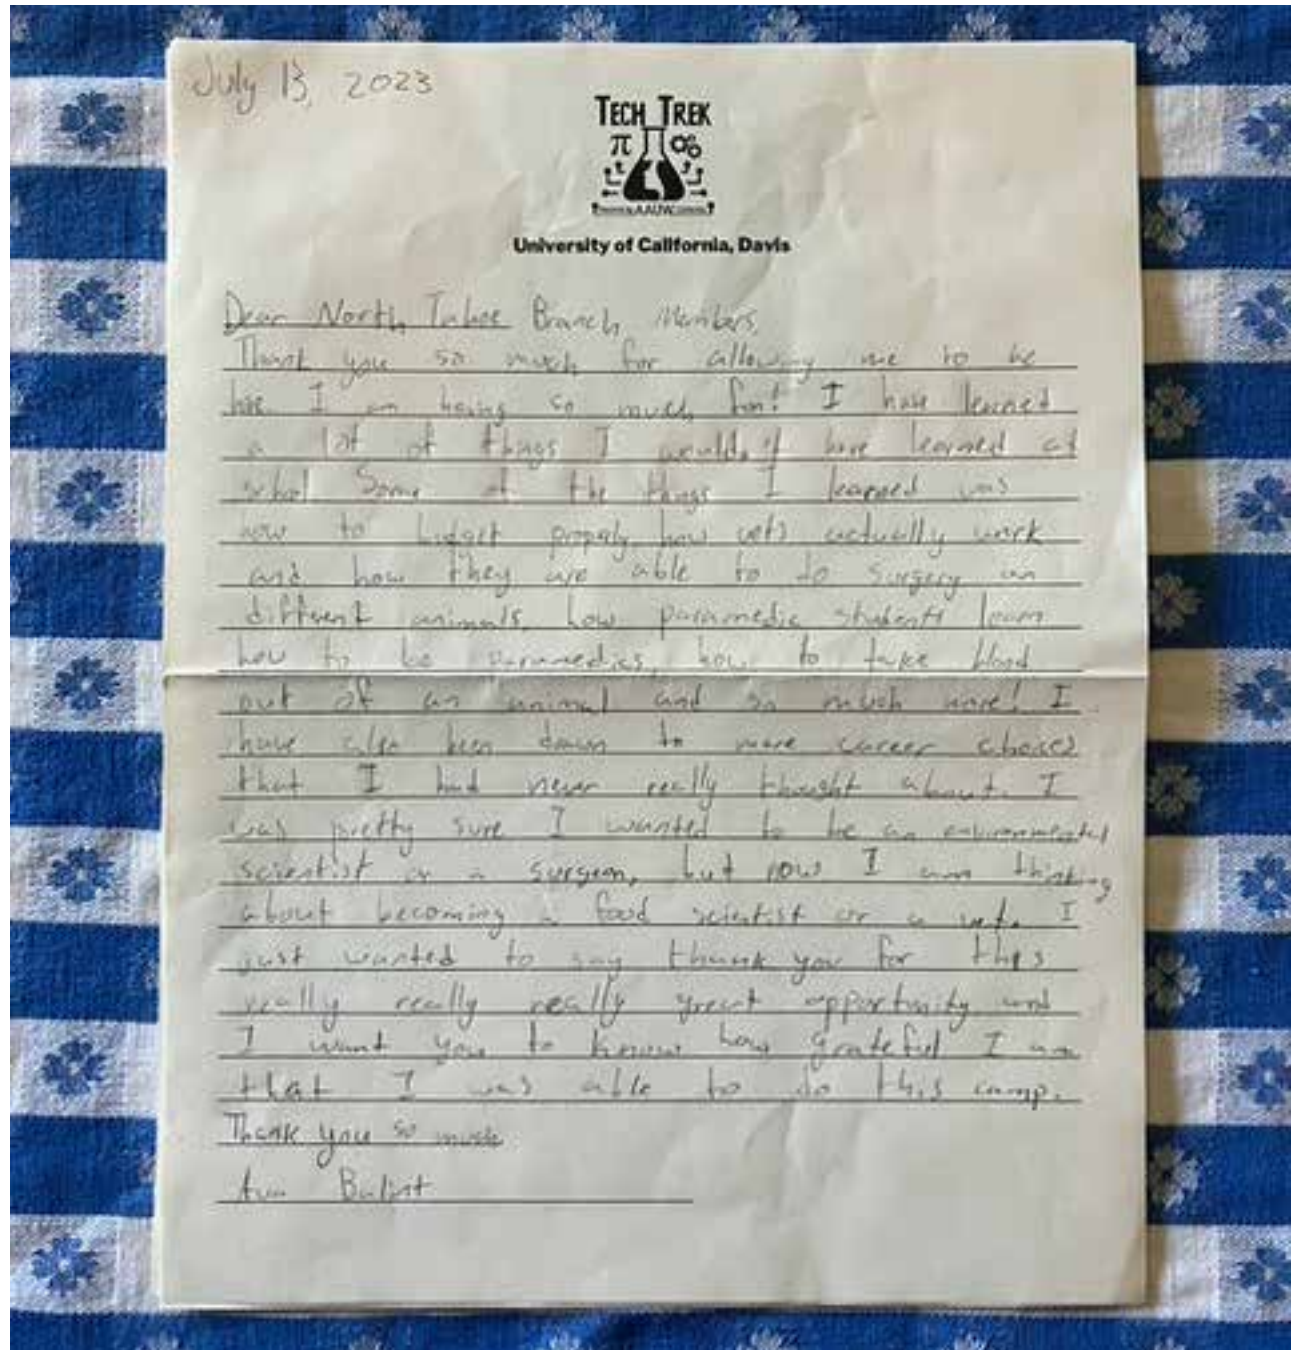 July 13, 2023
TECH TREK
π
AAUW
University of California, Davis
Dear North Tahoe Branch Members,
Thank you so much for allowing me to be
here. I am having so much fun! I have learned
a lot of things I wouldn't have learned at
school. Some of the things I learned was
how to budget properly, how vets actually work
and how they are able to do surgery on
different animals, how paramedic students learn
how to be paramedics, how to take blood
out of an animal and so much more! I
have also been drawn to more career choices
that I had never really thought about. I
was pretty sure I wanted to be an environmental
scientist or a surgeon, but now I am thinking
about becoming a food scientist or a vet. I
just wanted to say thank you for this
really really really great opportunity and
I want you to know how grateful I am
that I was able to do this camp.
Thank you so much